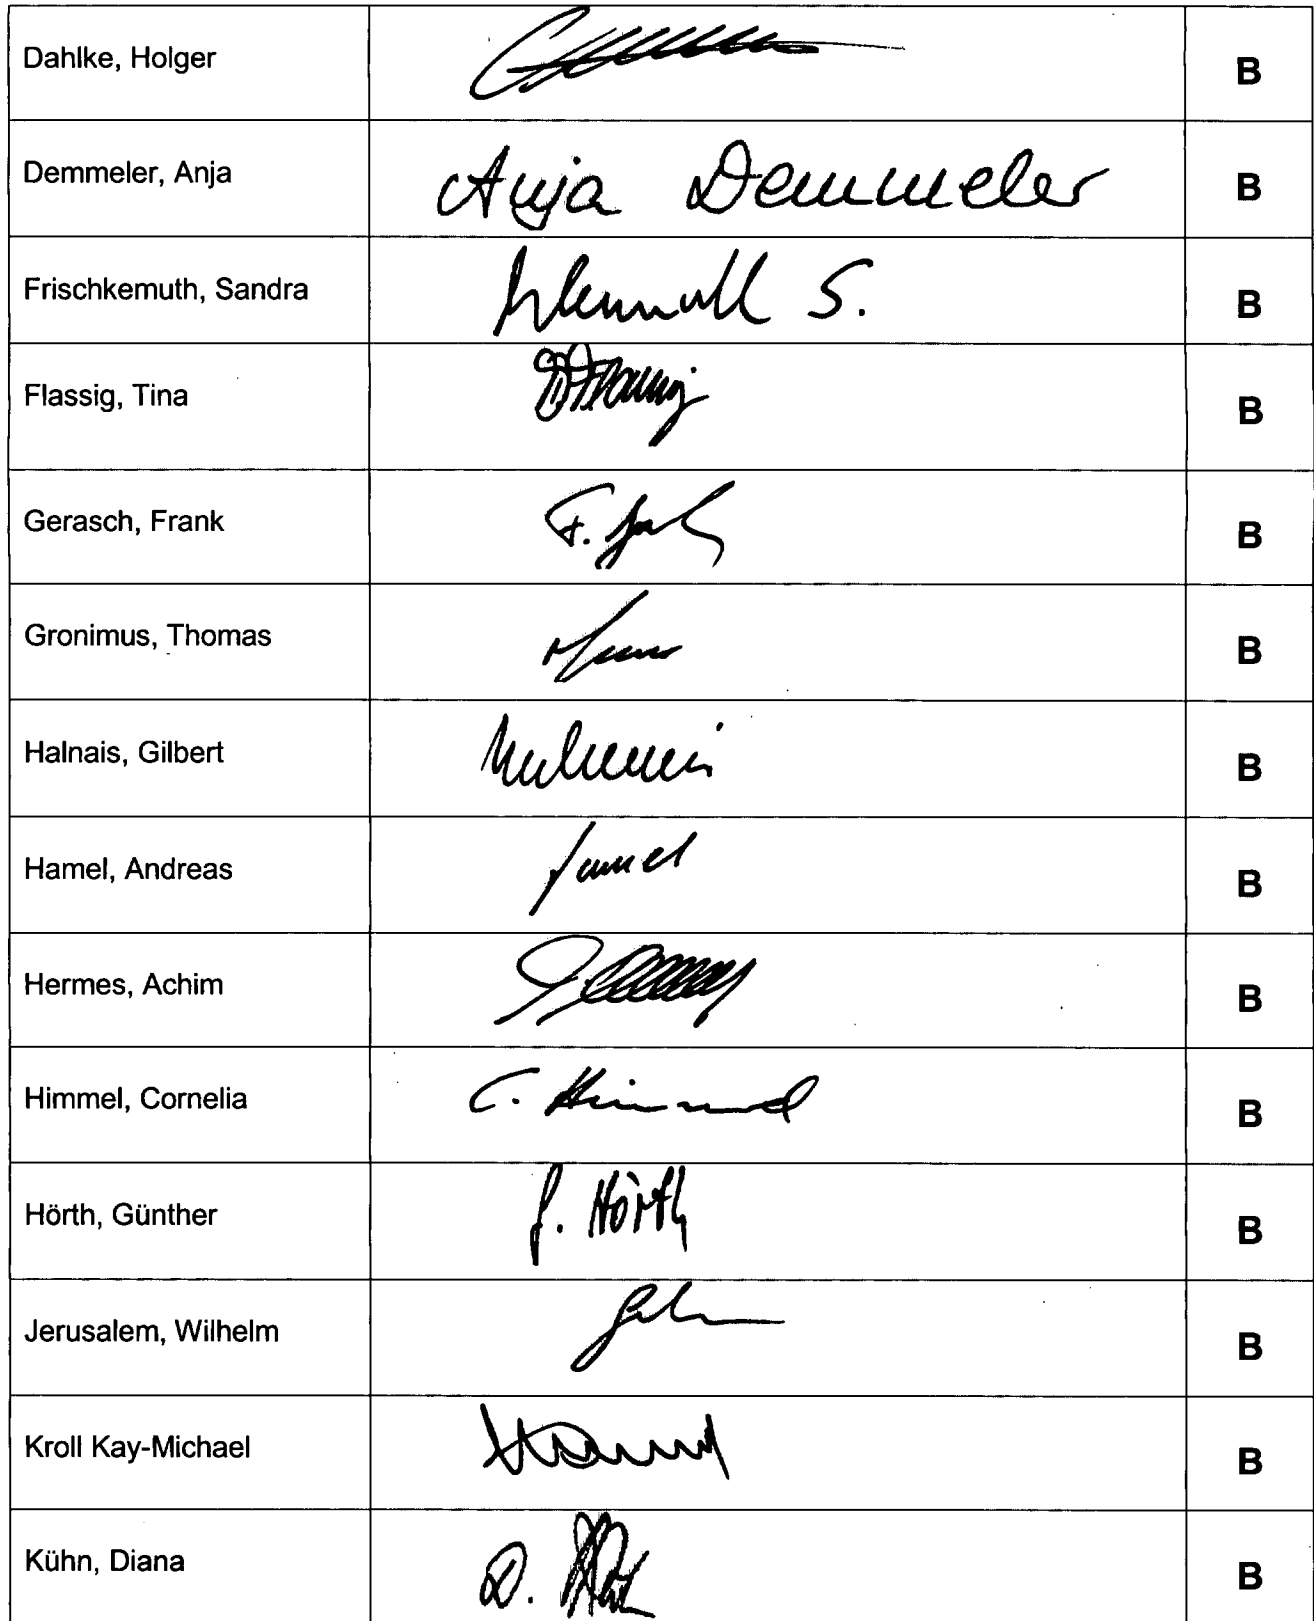 Dahlke, Holger B
Demmeler, Anja Anja Demmeler B
Frischkemuth, Sandra S. B
Flassig, Tina B
Gerasch, Frank F. B
Gronimus, Thomas B
Halnais, Gilbert B
Hamel, Andreas Hamel B
Hermes, Achim B
Himmel, Cornelia C. Himmel B
Hörth, Günther G. Hörth B
Jerusalem, Wilhelm B
Kroll Kay-Michael B
Kühn, Diana D. B